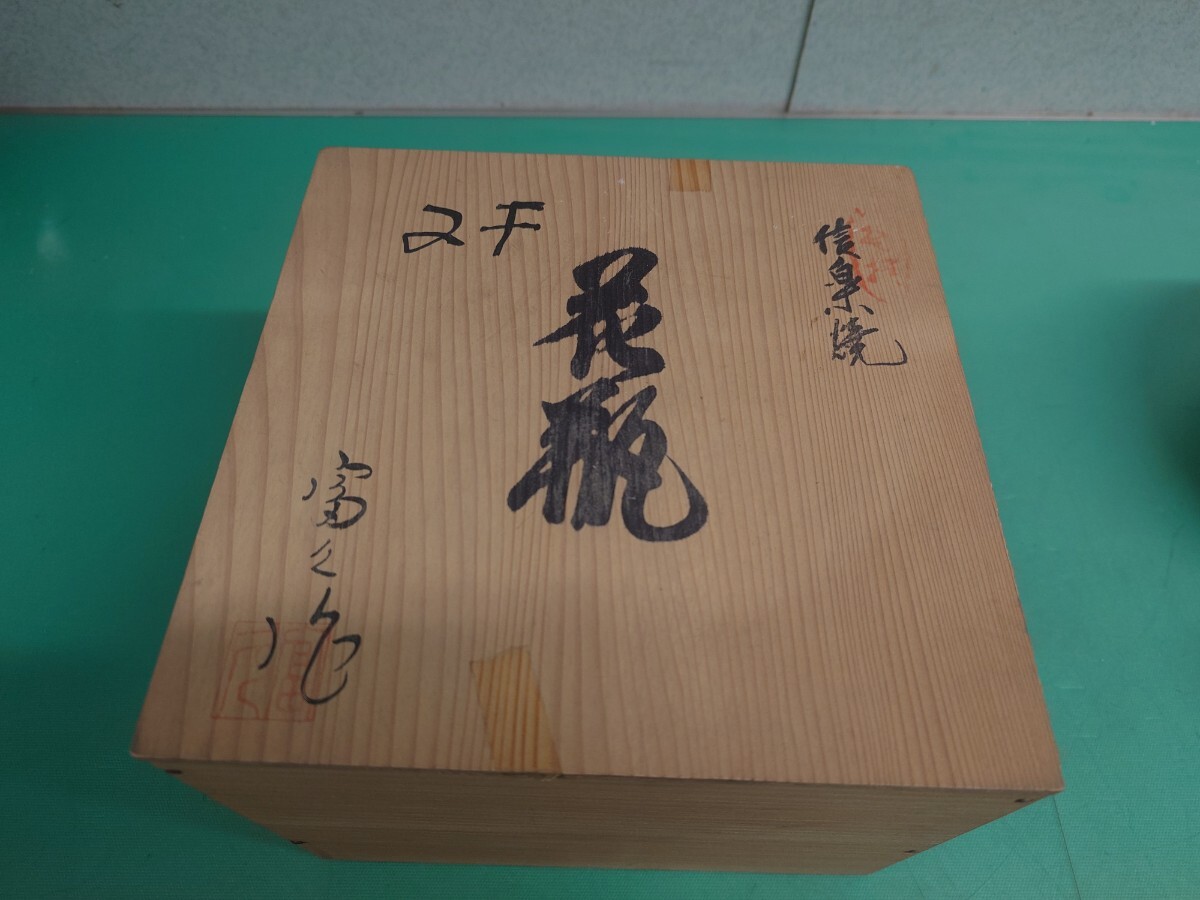 2F
信楽焼
花瓶
富久作